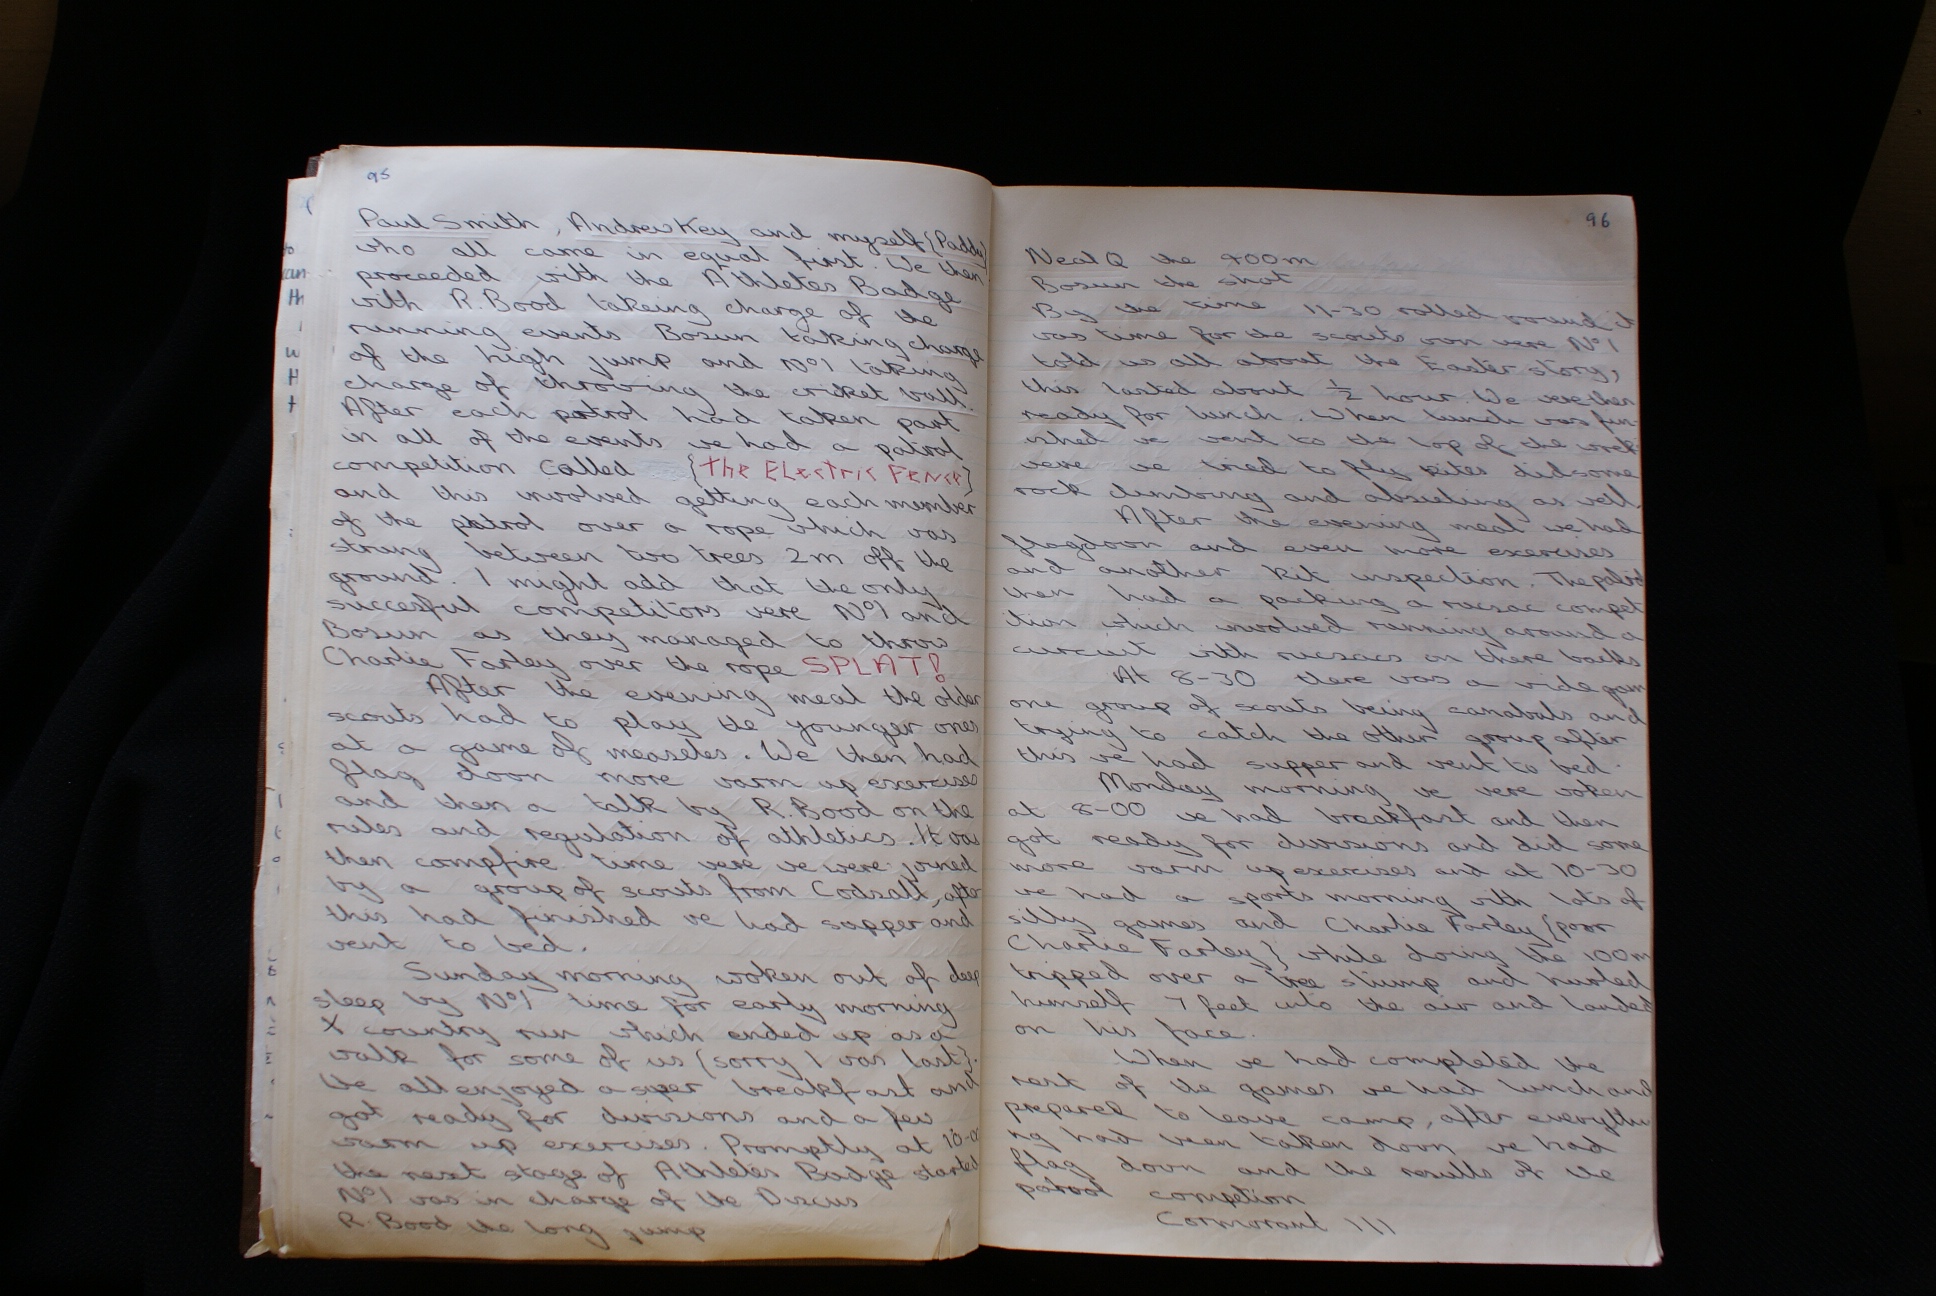 95
Paul Smith, Andrew Key and myself {Paddy}
who all came in equal first. We then
proceeded with the Athletes Badge
with R. Bood takeing charge of the
running events Bosun taking charge
of the high jump and No1 taking
charge of throwing the cricket ball.
After each patrol had taken part
in all of the events we had a patrol
competition called {the Electric Fence}
and this involved getting each member
of the patrol over a rope which was
strung between two trees 2m off the
ground. I might add that the only
succesful competitors were No1 and
Bosun as they managed to throw
Charlie Farley over the rope SPLAT!
After the evening meal the older
scouts had to play the younger ones
at a game of measeles. We then had
flag down more warm up exercises
and then a talk by R. Bood on the
rules and regulation of athletics. It was
then campfire time were we were joined
by a group of scouts from Codsall, after
this had finished we had supper and
went to bed.
Sunday morning woken out of deep
sleep by No1 time for early morning
X country run which ended up as a
walk for some of us {sorry I was last}.
We all enjoyed a super breakfast and
got ready for divisions and a few
warm up exercises. Promptly at 10-00
the next stage of Athletes Badge started
No1 was in charge of the Discus
R. Bood the long jump
96
Neal Q the 400m
Bosun the shot
By the time 11-30 rolled round it
was time for the scouts own were No1
told us all about the Easter story,
this lasted about ½ hour. We were then
ready for lunch. When lunch was fin-
ished we went to the top of the
were we tried to fly kites did some
rock climbing and abseiling as well.
After the evening meal we had
flagdown and even more exercises
and another kit inspection. The patrol
then had a packing a rucsac compet
ition which involved running around a
curcuit with rucsacs on there backs
At 8-30 there was a wide game
one group of scouts being canabals and
trying to catch the other group after
this we had supper and went to bed.
Monday morning we were woken
at 8-00 we had breakfast and then
got ready for divisions and did some
more warm up exercises and at 10-30
we had a sports morning with lots of
silly games and Charlie Farley {poor
Charlie Farley} while doing the 100m
tripped over a tree stump and hurled
himself 7 feet into the air and landed
on his face.
When we had completed the
rest of the games we had lunch and
prepared to leave camp, after everythi
ng had been taken down we had
flag down and the results of the
patrol competion
Cormorant 111